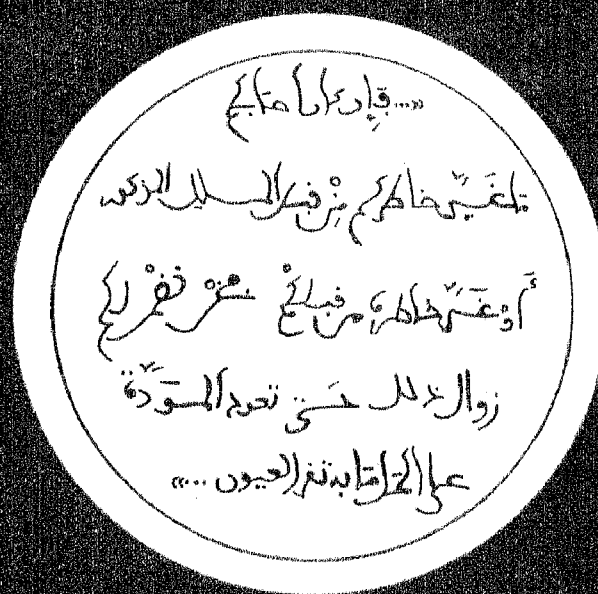 «... فإن كان ما بكم
تغَيّر خاطركم مِنْ قبل السلطان المذكور
أَوْ تغَيّر خاطره من قبلكمْ نحنْ نضمنْ لكم
زوال ذلك حَتى تعود المَوَدّة
على ما به تقر العيون ...»